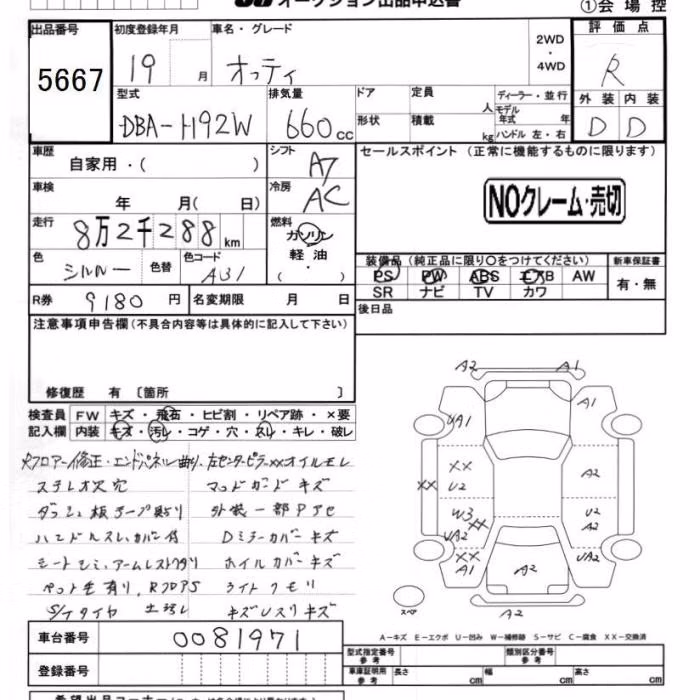 オークション出品申込書
①会場控
出品番号 初度登録年月 車名・グレード 2WD・4WD 評価点
5667 19 月 オッティ R
型式 排気量 ドア 定員 人 ディーラー・並行 外装 内装
DBA-H92W 660 cc 形状 積載 kg モデル年式 年 ハンドル 左・右 D D
車歴 自家用・( ) シフト A7 セールスポイント (正常に機能するものに限ります)
車検 年 月( 日) 冷房 AC
NOクレーム・売切
走行 8万2千288km 燃料 ガソリン・軽油・( )
色 シルバー 色替 色コード A31
装備品 (純正品に限り○をつけてください) 新車保証書
PS PW ABS エアB AW 有・無
SR ナビ TV カワ
R券 9180 円 名変期限 月 日 後日品
注意事項申告欄(不具合内容等は具体的に記入して下さい)
修復歴 有 〔箇所 〕
検査員 FW キズ・飛石・ヒビ割・リペア跡・×要
記入欄 内装 キズ・汚レ・コゲ・穴・スレ・キレ・破レ
Rフロアー修正・エンドパネル曲り、左センターピラーXX オイルモレ
ステレオ欠穴 マッドガードキズ
ダッシュ板テープ貼り 外装一部Pアセ
ハンドルスレ、カバー付 Dミラーカバーキズ
シートシミ、アームレスト ホイルカバーキズ
ペット毛有り、RフロアS ライトクモリ
S/Tタイヤ キズUスリキズ
A2 A1
UA1 A1
XX
XX U2 A2
W3 XX U2
UA2 A2
XX A1 A2 A2
スペア A2
A－キズ E－エクボ U－凹み W－補修跡 S－サビ C－腐食 XX－交換済
車台番号 0081971 型式指定番号 参考 類別区分番号 参考
登録番号 車庫証明用 参考 長さ cm 幅 cm 高さ cm